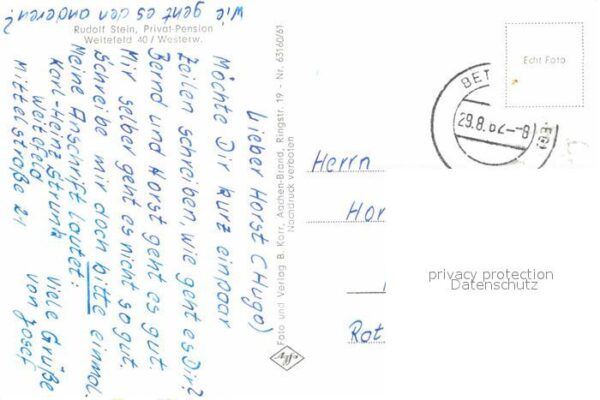 Rudolf Stein, Privat-Pension
Weitefeld 40 / Westerw.
Lieber Horst (Hugo)
Möchte Dir kurz ein paar
Zeilen schreiben, wie geht es Dir?
Bernd und Horst geht es gut.
Mir selber geht es nicht so gut.
Schreibe mir doch bitte einmal.
Meine Anschrift lautet:
Karl-Heinz Strunk
Weitefeld
Mittelstraße 21
Viele Grüße
von Josef
Wie geht es den anderen?
Foto und Verlag B. Korr, Aachen-Brand, Ringstr. 19 - Nr. 63160/61
Nachdruck verboten
Echt Foto
29.8.62--8
Herrn
Hor
Rot
privacy protection
Datenschutz